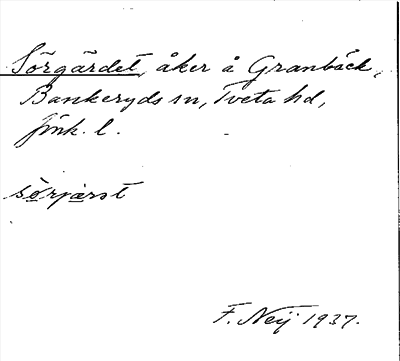 Sörgärdet, åker å Granbäck,
Bankeryds sn, Tveta hd,
Jönk. l.
sörjærst
F. Neij 1937.